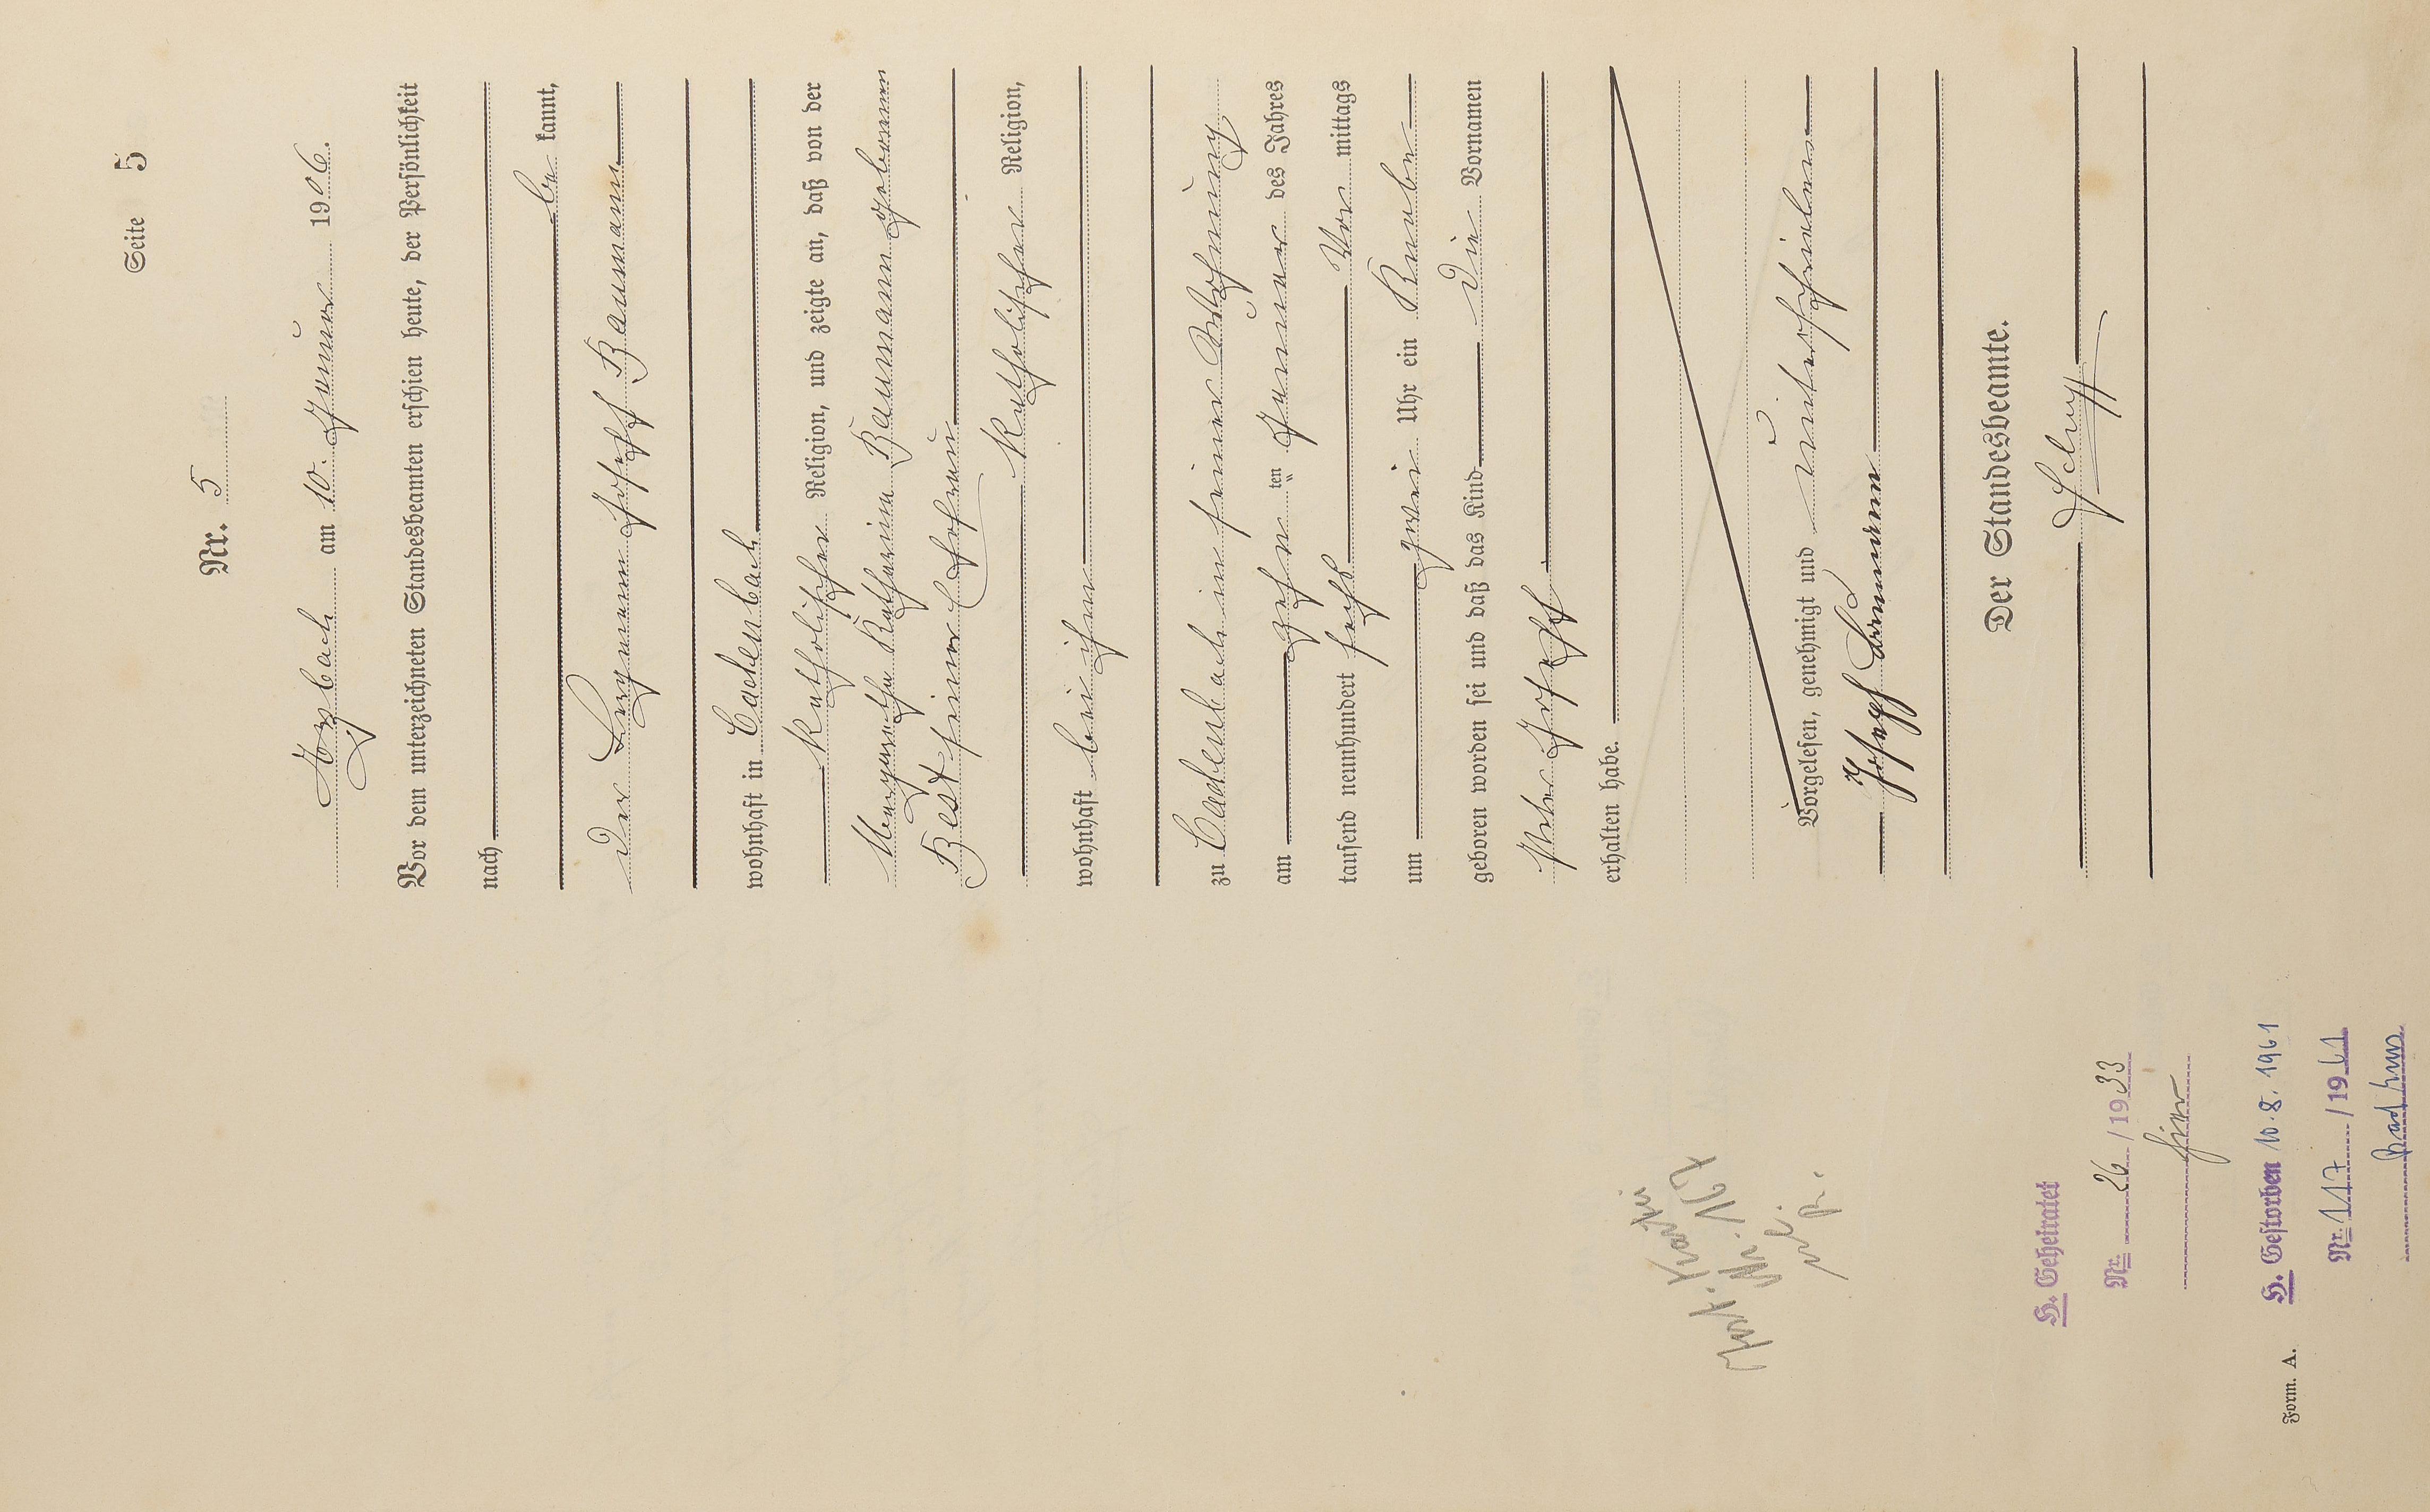 Seite 5
Nr. 5
am 10. Januar 1906.
Vor dem unterzeichneten Standesbeamten erschien heute, der Persönlichkeit
nach
be kannt,
der Bergmann Joseph Baumann
wohnhaft in Cadenbach
katholischer Religion, und zeigte an, daß von der
Margaretha Katharina Baumann geborenen
Best seiner Ehefrau
katholischer Religion,
wohnhaft bei ihm
zu Cadenbach in seiner Wohnung
am zehn ten Januar des Jahres
tausend neunhundert sechs Vor mittags
um zwei Uhr ein Knabe
geboren worden sei und daß das Kind die Vornamen
Peter Joseph
erhalten habe.
Vorgelesen, genehmigt und unterschrieben
Joseph Baumann
Der Standesbeamte.
Nr. 167
H. Geheiratet
Nr. 26 / 1933
hier
H. Gestorben 10.8.1961
Nr. 117 / 1961
Form. A.